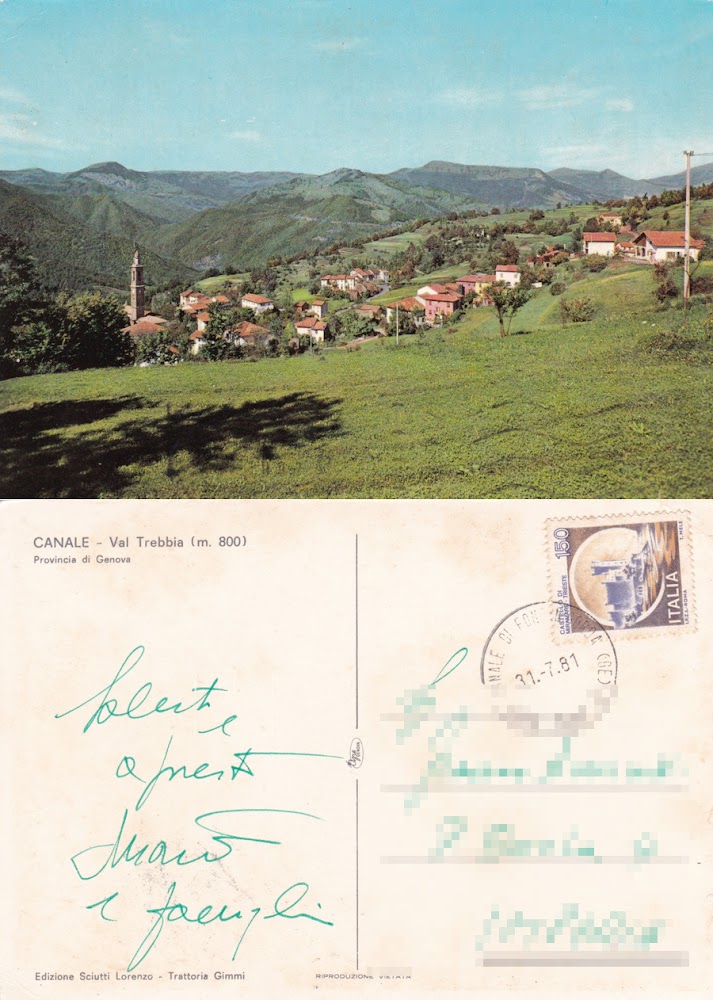 CANALE - Val Trebbia (m. 800)
Provincia di Genova
150
CASTELLO DI
MIRAMARE-TRIESTE
ITALIA
I.P.Z.S.-ROMA
E. NELE
NALE DI FON
(GE)
31.-7.81
Saluti
e
a presto
e famiglia
Edizione Sciutti Lorenzo - Trattoria Gimmi
RIPRODUZIONE VIETATA